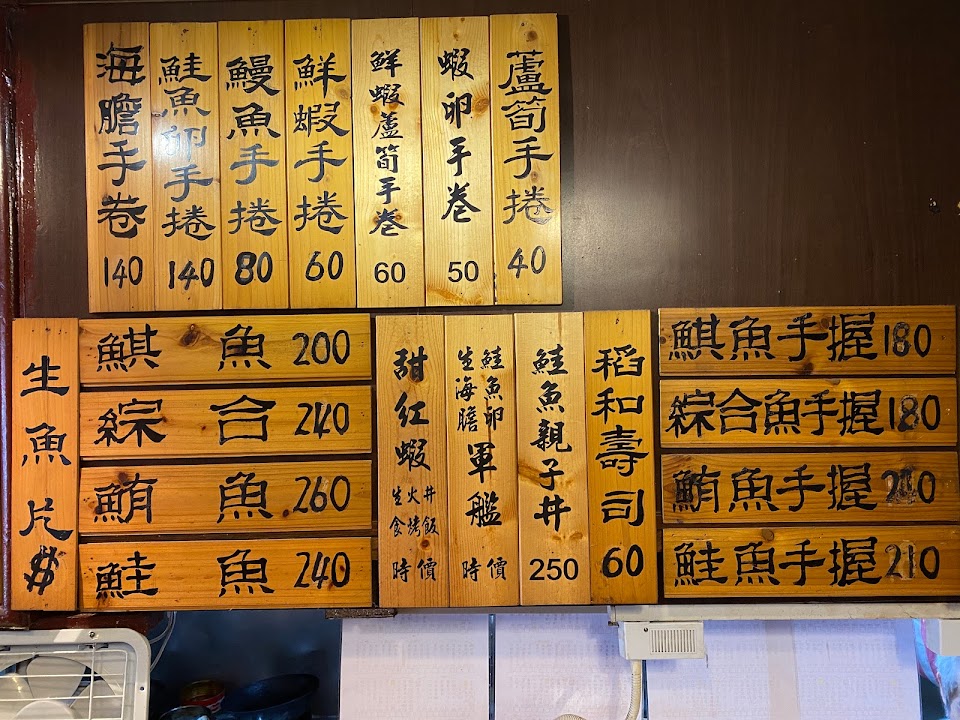 海膽手卷 140
鮭魚卵手捲 140
鰻魚手捲 80
鮮蝦手捲 60
鮮蝦蘆筍手卷 60
蝦卵手卷 50
蘆筍手捲 40
生魚片$
鯕魚 200
綜合 240
鮪魚 260
鮭魚 240
甜紅蝦 生食 火烤 丼飯 時價
鮭魚卵 生海膽 軍艦 時價
鮭魚親子丼 250
稻和壽司 60
鯕魚手握 180
綜合魚手握 180
鮪魚手握
鮭魚手握 210